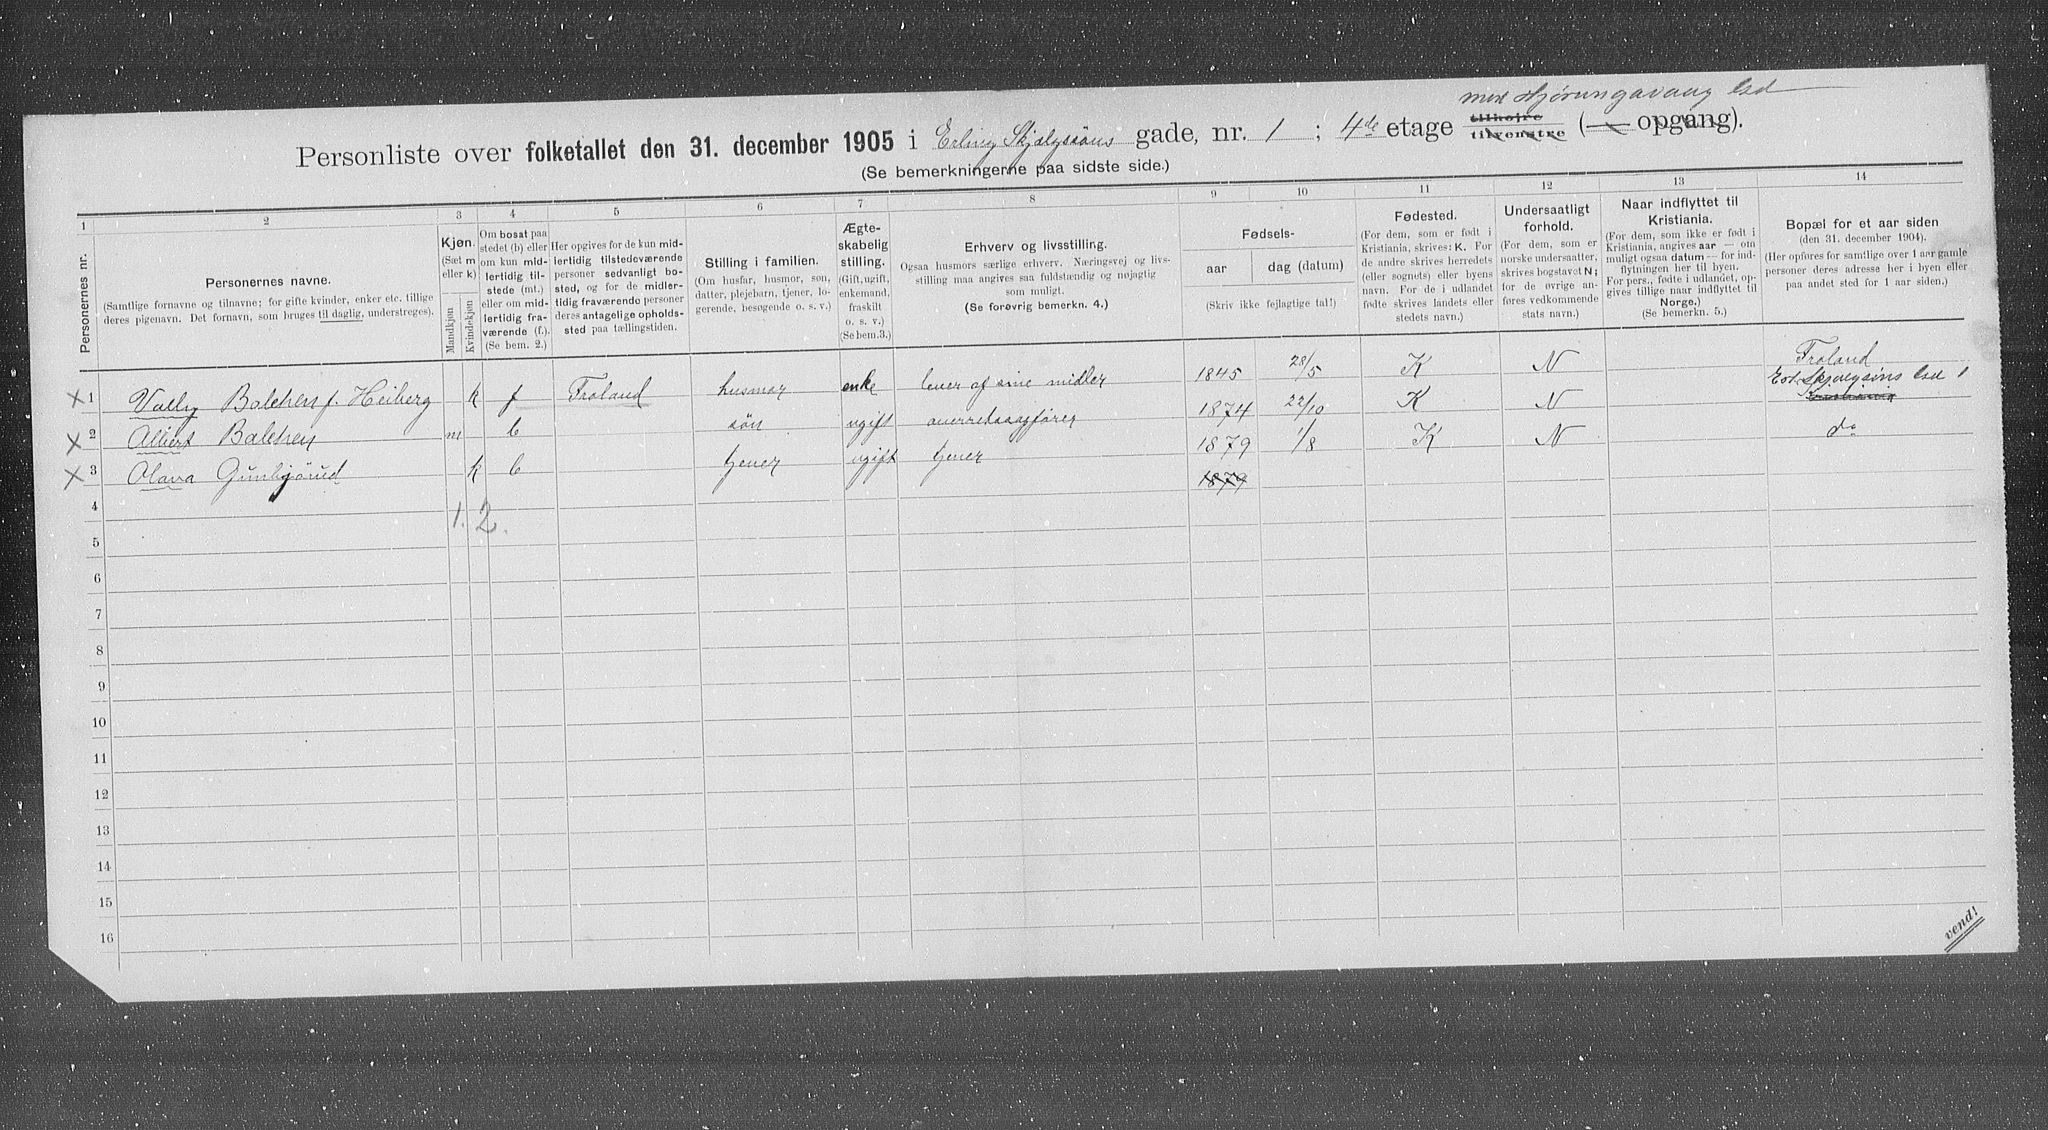 mod Hjørungavaag Gd
Personliste over folketallet den 31. december 1905 i Erling Skjalgsøns gade, nr. 1 ; 4de etage tilhøjre tilvenstre (— opgang).
(Se bemerkningerne paa sidste side.)
1 2 3 4 5 6 7 8 9 10 11 12 13 14
Personernes nr.
Personernes navne.
(Samtlige fornavne og tilnavne; for gifte kvinder, enker etc. tillige
deres pigenavn. Det fornavn, som bruges til daglig, understreges).
Kjøn.
(Sæt m
eller k)
Mandkjøn
Kvindekjøn
Om bosat paa
stedet (b) eller
om kun mid-
lertidig til-
stede (mt.)
eller om mid-
lertidig fra-
værende (f.).
(Se bem. 2.)
Her opgives for de kun mid-
lertidig tilstedeværende
personer sedvanlig bo-
sted, og for de midler-
tidig fraværende personer
deres antagelige opholds-
sted paa tællingstiden.
Stilling i familien.
(Om husfar, husmor, søn,
datter, plejebarn, tjener, lo-
gerende, besøgende o. s. v.)
Ægte-
skabelig
stilling.
(Gift, ugift,
enkemand,
fraskilt
o. s. v.)
(Se bem.3.)
Erhverv og livsstilling.
Ogsaa husmors særlige erhverv. Næringsvej og livs-
stilling maa angives saa fuldstændig og nøjagtig
som muligt.
(Se forøvrig bemerkn. 4.)
Fødsels-
aar
dag (datum)
(Skriv ikke fejlagtige tal!)
Fødested.
(For dem, som er født i
Kristiania, skrives: K. For
de andre skrives herredets
(eller sognets) eller byens
navn. For de i udlandet
fødte skrives landets eller
stedets navn.)
Undersaatligt
forhold.
(For dem, som er
norske undersaatter,
skrives bogstavet N;
for de øvrige an-
føres vedkommende
stats navn.)
Naar indflyttet til
Kristiania.
(For dem, som ikke er født i
Kristiania, angives aar — om
muligt ogsaa datum — for ind-
flytningen her til byen.
For pers., fødte i udlandet, op-
gives tillige naar indflyttet til
Norge.)
(Se bemerkn. 5.)
Bopæl for et aar siden
(den 31. december 1904).
(Her opføres for samtlige over 1 aar gamle
personer deres adresse her i byen eller
paa andet sted for 1 aar siden.)
× 1 Vally Balchen f. Heiberg k f Froland husmor enke lever af sine midler 1845 28/5 K N Froland
× 2 Albert Balchen m b søn ugift overretssagfører 1874 22/10 K N Erl. Skjalgsøns Gd 1
× 3 Olava Gunbjørud k b tjener ugift tjener 1879 1/8 K N do
1879
4
1. 2.
5
6
7
8
9
10
11
12
13
14
15
16
vend!